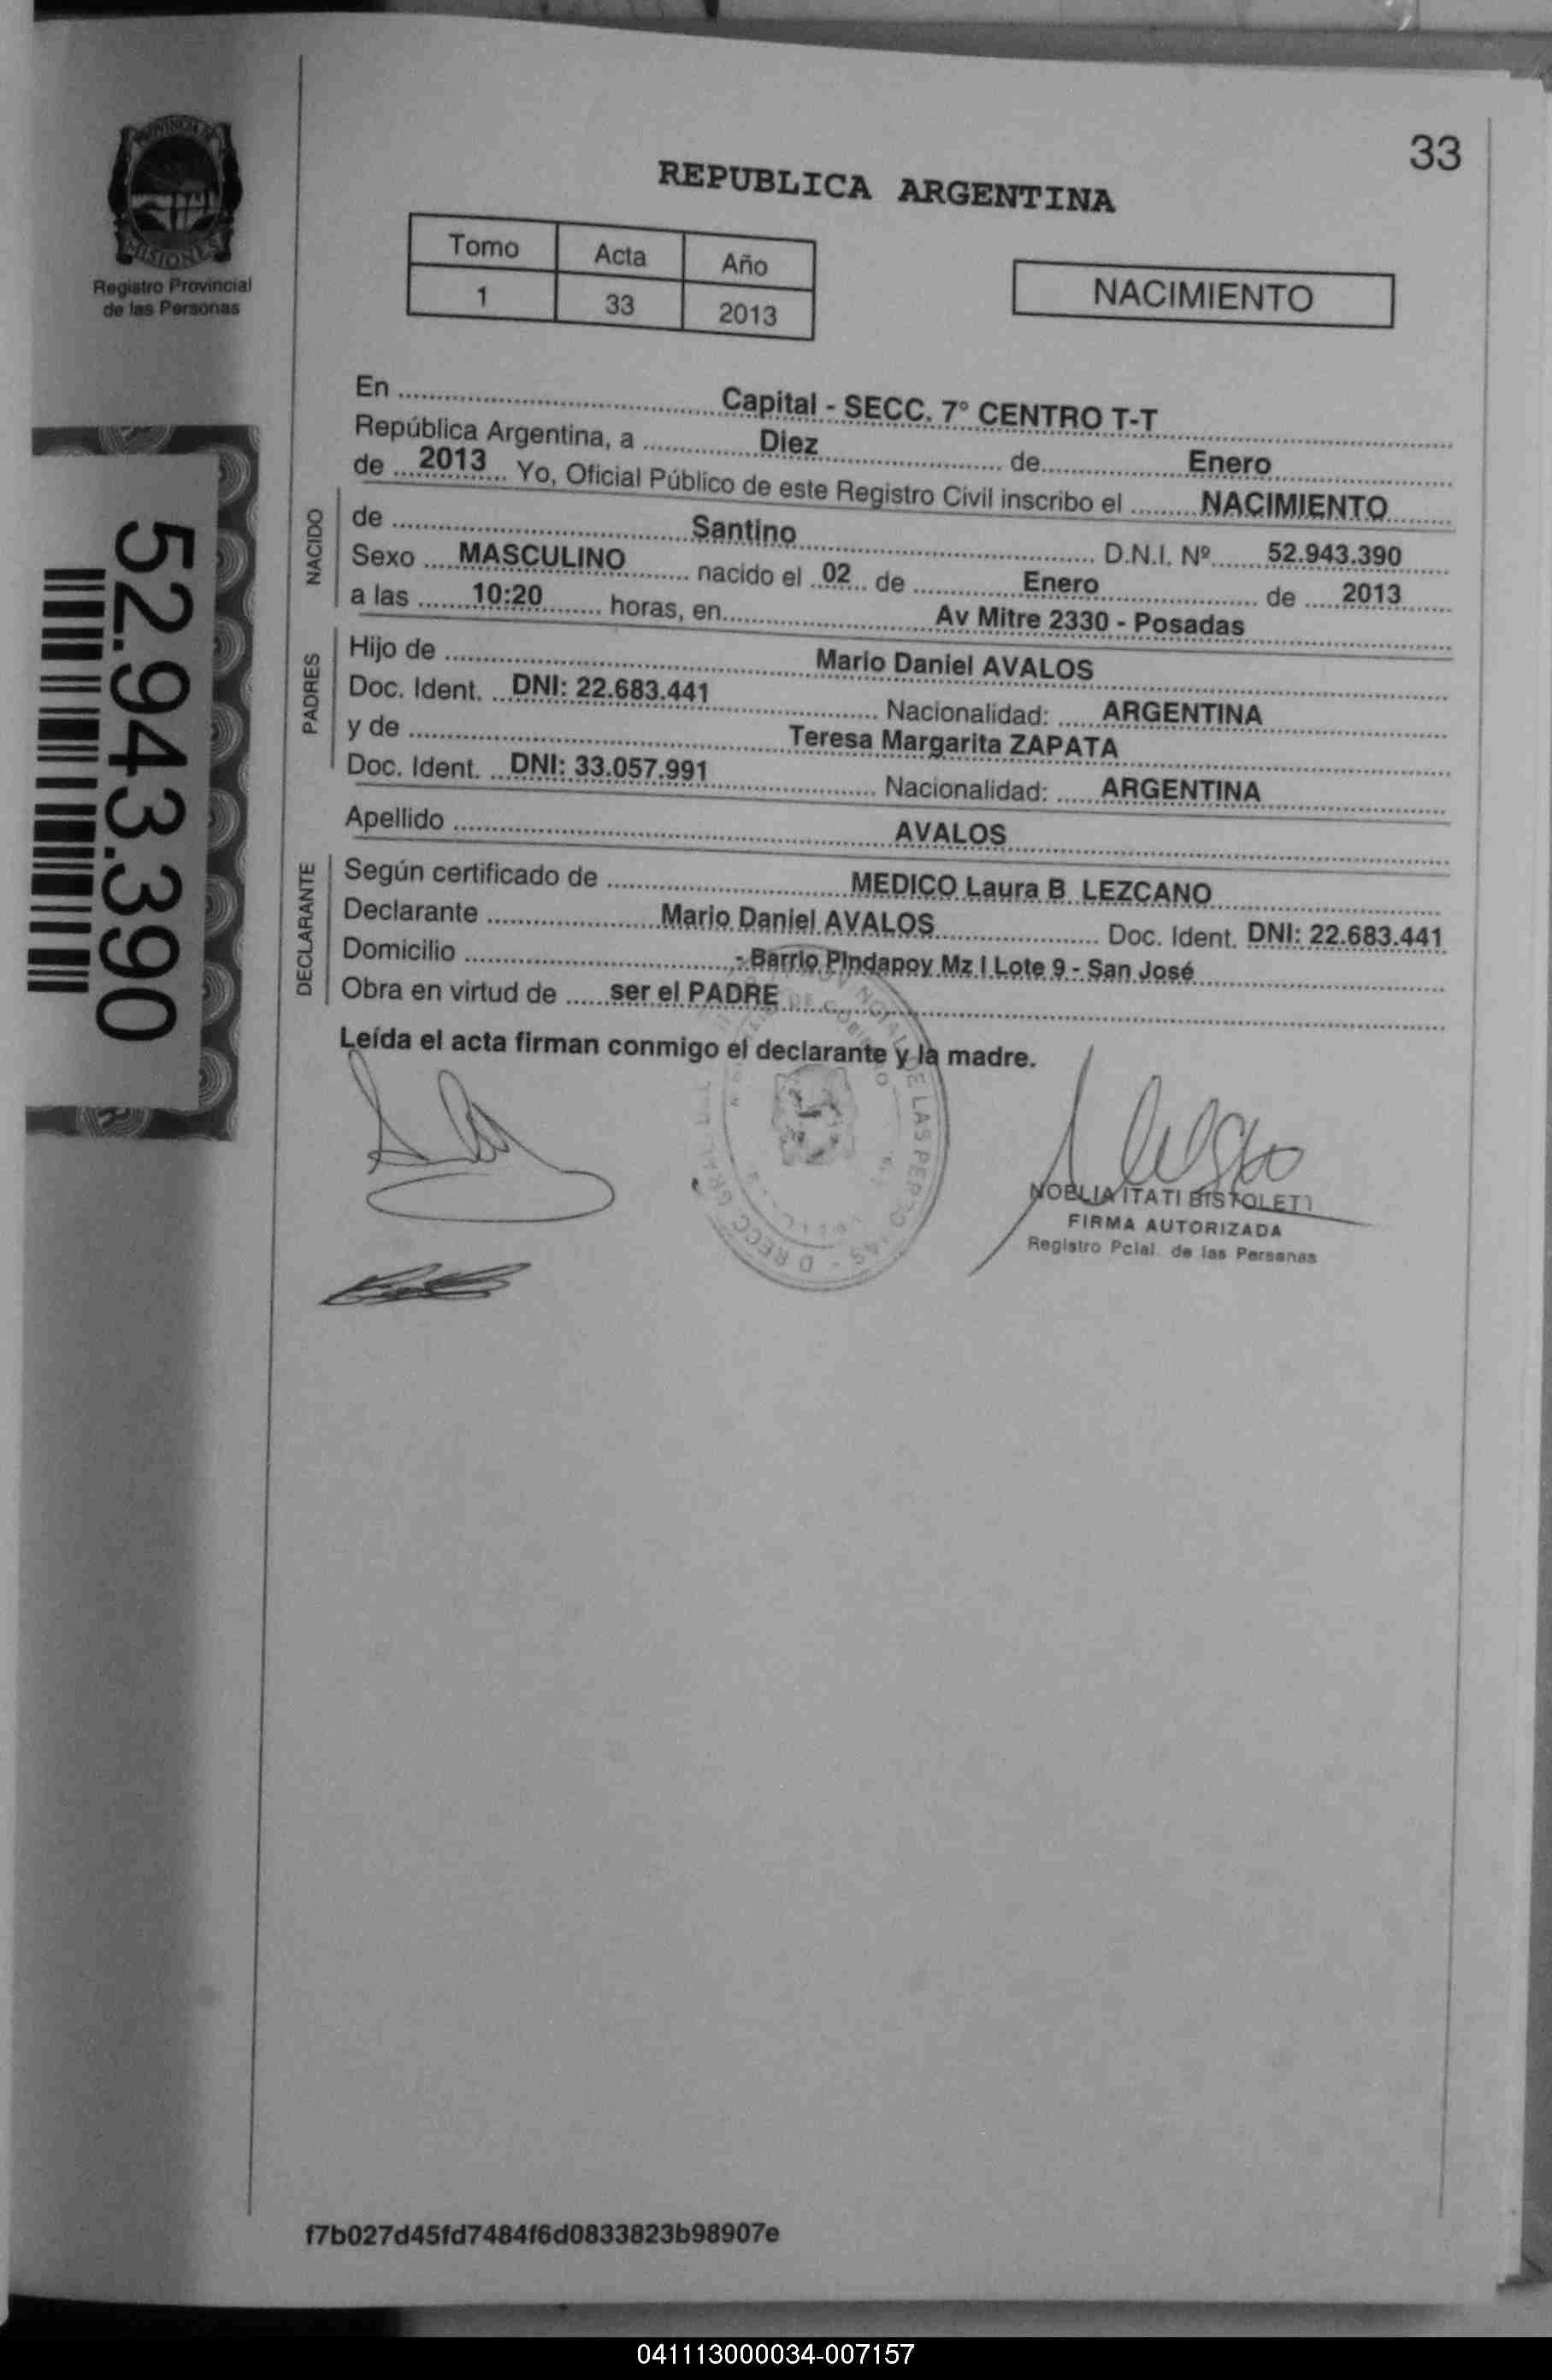 PROVINCIA DE
MISIONES
Registro Provincial
de las Personas
33
REPUBLICA ARGENTINA
Tomo Acta Año
1 33 2013
NACIMIENTO
52.943.390
En Capital - SECC. 7° CENTRO T-T
República Argentina, a Diez de Enero
de 2013 Yo, Oficial Público de este Registro Civil inscribo el NACIMIENTO
NACIDO
de Santino D.N.I. Nº 52.943.390
Sexo MASCULINO nacido el 02 de Enero de 2013
a las 10:20 horas, en Av Mitre 2330 - Posadas
PADRES
Hijo de Mario Daniel AVALOS
Doc. Ident. DNI: 22.683.441 Nacionalidad: ARGENTINA
y de Teresa Margarita ZAPATA
Doc. Ident. DNI: 33.057.991 Nacionalidad: ARGENTINA
Apellido AVALOS
DECLARANTE
Según certificado de MEDICO Laura B. LEZCANO
Declarante Mario Daniel AVALOS Doc. Ident. DNI: 22.683.441
Domicilio - Barrio Pindapoy Mz I Lote 9 - San José
Obra en virtud de ser el PADRE
Leída el acta firman conmigo el declarante y la madre.
NOELIA ITATI BISTOLETI
FIRMA AUTORIZADA
Registro Pcial. de las Personas
f7b027d45fd7484f6d0833823b98907e
041113000034-007157